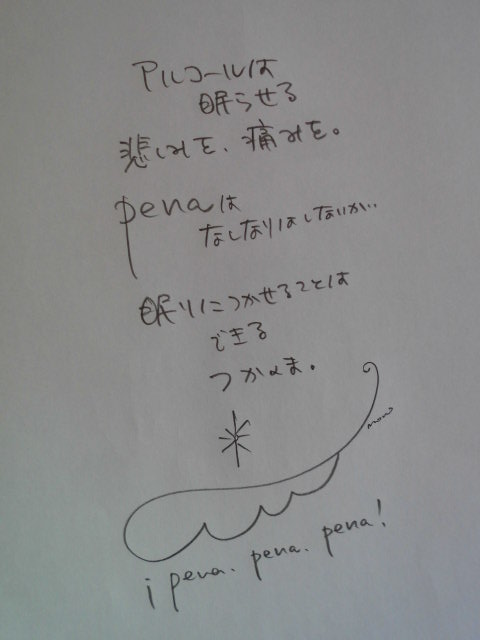 アルコールは
眠らせる
悲しみを、痛みを。
penaは
なしなりはしないが..
眠りにつかせることは
できる
つかのま。
¡ pena. pena. pena!